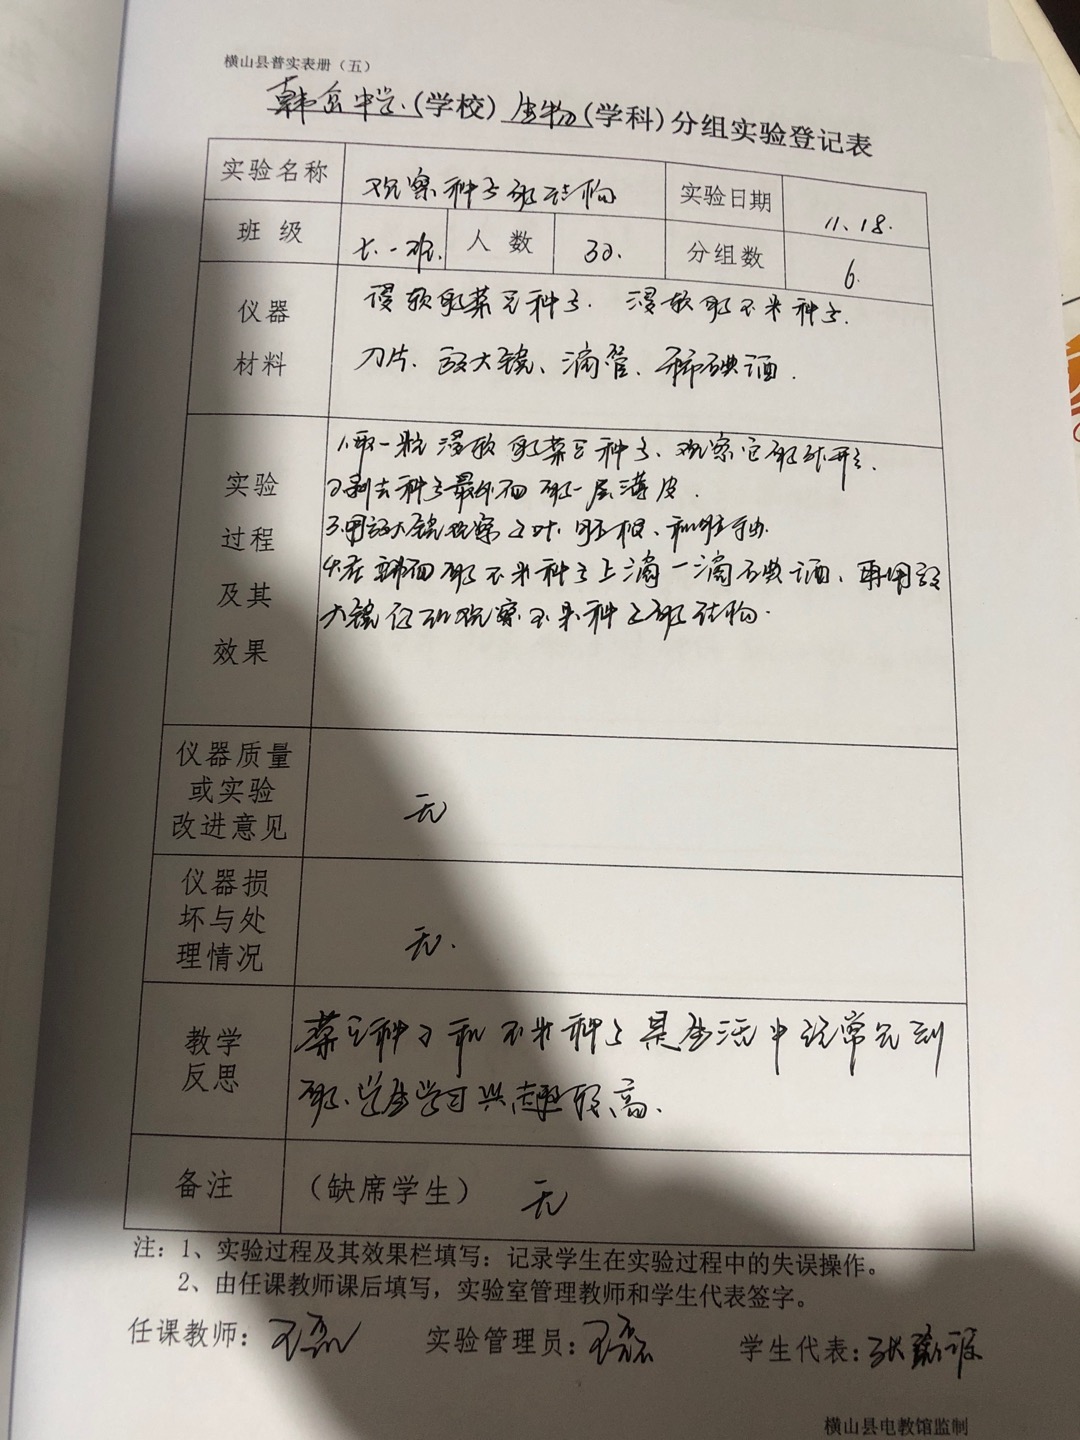 横山县普实表册（五）
韩岔中学(学校) 生物(学科)分组实验登记表
实验名称 观察种子的结构 实验日期 11.18.
班级 七.一班. 人数 30. 分组数 6.
仪器材料 浸软的菜豆种子. 浸软的玉米种子.
刀片、放大镜、滴管、稀碘酒.
实验过程及其效果 1.取一粒浸软的菜豆种子、观察它的外形.
2剥去种子最外面的一层薄皮.
3.用放大镜观察子叶、胚根、和胚
4.在 面的玉米种子上滴一滴碘酒、再用放
大镜仔细观察玉米种子的结构.
仪器质量或实验改进意见 无
仪器损坏与处理情况 无.
教学反思 菜豆种子和玉米种子是生活中经常见到
的、学生学习兴趣较高.
备注 （缺席学生） 无
注：1、实验过程及其效果栏填写：记录学生在实验过程中的失误操作。
2、由任课教师课后填写，实验室管理教师和学生代表签字。
任课教师： 实验管理员： 学生代表：张
横山县电教馆监制